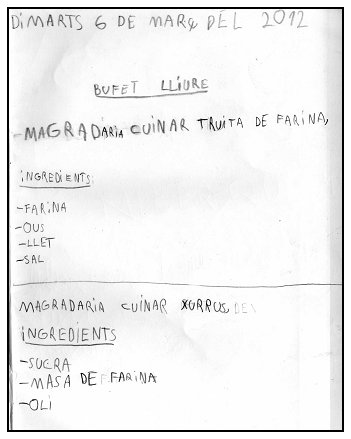 DIMARTS 6 DE MARÇ DEL 2012
BUFET LLIURE
-MAGRADARIA CUINAR TRUITA DE FARINA,
INGREDIENTS:
-FARINA
-OUS
-LLET
-SAL
MAGRADARIA CUINAR XURRUS, DE
INGREDIENTS
-SUCRA
-MASA DE FARINA
-OLI